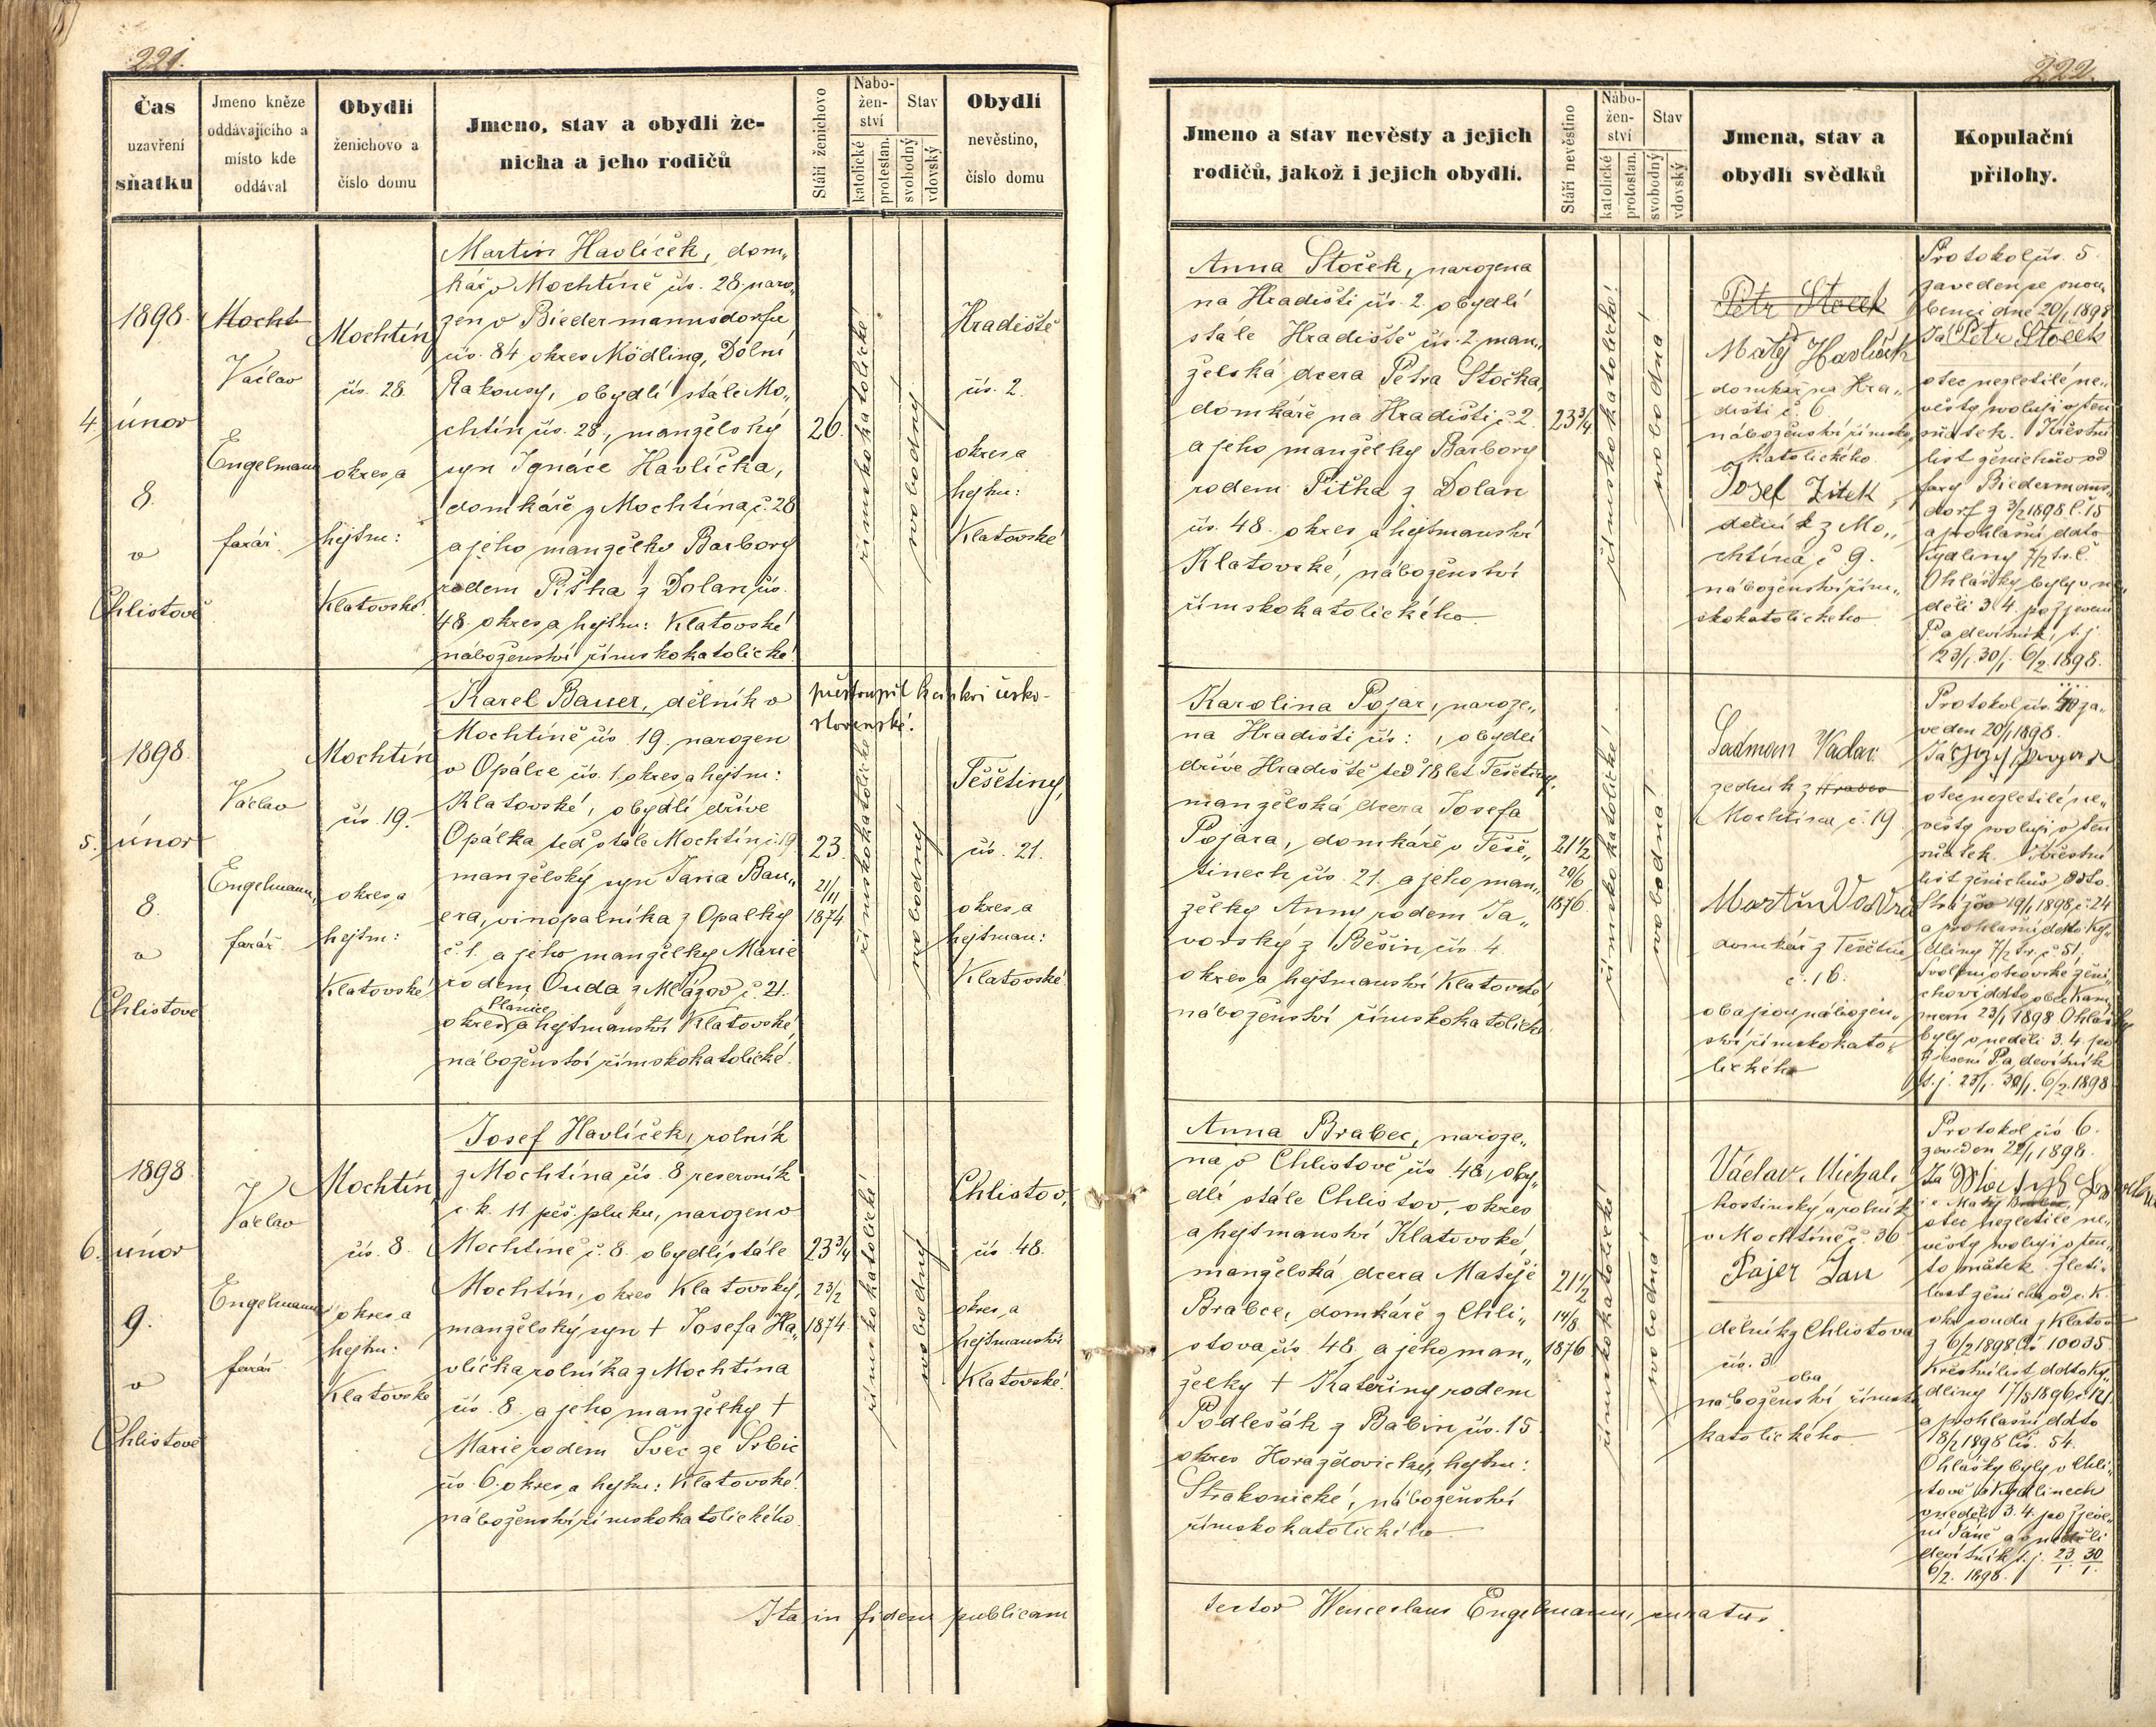 221.
Čas
uzavření
sňatku
Jmeno kněze
oddávajícího a
místo kde
oddával
Obydlí
ženichovo a
číslo domu
Jmeno, stav a obydlí že-
nicha a jeho rodičů
Stáří ženichovo
Nabo-
žen-
ství
katolické
protestan.
Stav
svobodný
vdovský
Obydlí
nevěstino,
číslo domu
1898.
4. únor
8.
v
Chlistově
Mocht
Václav
Engelmann
farář.
Mochtín
čís. 28.
okres a
hejtm:
Klatovské.
Martin Havlíček, dom„
kář v Mochtíně čís. 28. naro„
zen v Biedermannsdorfu
čís. 84 okres Mödling, Dolní
Rakousy, obydlí stále Mo„
chtín čís. 28., manželský
syn Ignáce Havlíčka,
domkáře z Mochtína č. 28
a jeho manželky Barbory
rodem Pitha z Dolan čís.
48. okres a hejtm: Klatovské
náboženství římskokatolické.
26.
římskokatolické!
svobodný!
Hradiště
čís. 2.
okres a
hejtm:
Klatovské
1898.
5. únor
8.
v
Chlistově
Václav
Engelmann,
farář.
Mochtín
čís. 19.
okres a
hejtm:
Klatovské
Karel Bauer, dělník v
Mochtíně čís. 19. narozen
v Opálce čís. 1. okres a hejtm:
Klatovské, obydlí dříve
Opálka teď stále Mochtín č. 19
manželský syn Jana Bau„
era, vinopalníka z Opálky
č. 1. a jeho manželky Marie
rodem Ouda z Mlázov č. 21.
Plánice
okres a hejtmanství Klatovské,
náboženství římskokatolické.
přestoupil k církvi česko-
slovenské!
23.
21/11
1874
římskokatolické
svobodný!
Těšetiny,
čís. 21.
okres a
hejtman:
Klatovské.
1898.
6. únor
9.
v
Chlistově
Václav
Engelmann
farář
Mochtín,
čís. 8.
okres a
hejtm:
Klatovské
Josef Havlíček, rolník
z Mochtína čís. 8. reservník
c. k. 11 pěš. pluku, narozen v
Mochtíně č. 8. obydlí stále
Mochtín, okres Klatovský,
manželský syn † Josefa Ha„
vlíčka rolníka z Mochtína
čís. 8. a jeho manželky †
Marie rodem Švec ze Srbic
čís. 6. okres a hejtm: Klatovské.
náboženství římskokatolického.
23 3/4
23/2
1874.
římskokatolické
svobodný
Chlistov,
čís. 48.
okres a
hejtmanství
Klatovské.
Ita in fidem publicam
222.
Jmeno a stav nevěsty a jejich
rodičů, jakož i jejich obydlí.
Stáří nevěstino
Nábo-
žen-
ství
katolické
protostan.
Stav
svobodný
vdovský
Jmena, stav a
obydlí svědků
Kopulační
přílohy.
Anna Stoček, narozena
na Hradišti čís. 2. obydlí
stále Hradiště čís. 2. man„
želská dcera Petra Stočka,
domkáře na Hradišti č. 2.
a jeho manželky Barbory
rodem Pitha z Dolan
čís. 48. okres a hejtmanství
Klatovské, náboženství
římskokatolického.
23 3/4
římskokatolické!
svobodná!
Petr Stoček
Matěj Havlíček
domkář na Hra„
dišti č. 6.
náboženství římsko„
katolického.
Josef Zítek
dělník z Mo„
chtína č. 9.
náboženství řím„
skokatolického
Protokol čís. 5.
zaveden se snou„
benci dne 20/1 1898
Já Petr Stoček
otec nezletilé ne„
věsty svoluji v ten
sňatek. Křestní
list ženichův od
fary Biedermanns„
dorf z 3/2 1898 č. 15
a prohlášní ddto
Kydliny 7/2 t.r. č.
Ohlášky byly v ne„
děli 3. 4. po zjevení
P. a devítník, t. j.
23/1. 30/1. 6/2. 1898.
Karolina Pojar, naroze„
na Hradišti čís: , obydlí
dříve Hradiště teď 18 let Těšetiny,
manželská dcera Josefa
Pojara, domkáře v Těše„
tinech čís. 21. a jeho man„
želky Anny rodem Ja„
vorský z Běšin čís. 4.
okres a hejtmanství Klatovské
náboženství římskokatolické
21 1/2
20/6
1876.
římskokatolické!
svobodná!
Ladman Václav.
zedník z Hradeo
Mochtína č. 19.
Martin Vavra
domkář z Těšetin
č. 16.
oba jsou nábožen„
ství římskokato„
lického
Protokol čís. za„
veden 20/1 1898.
otec nezletilé ne„
věsty svoluji v ten
sňatek. Křestní
list ženichův ddto.
Strážov 19/1 1898 č. 24
a prohlášní ddto Ky„
dliny 7/2 t.r. č. 51,
Svolení otcovské ženi„
chovi ddto obec Kam
mern 23/1 1898. Ohlášky
byly v neděli 3. 4. po
Zjevení P. a devítník
t. j. 23/1. 30/1. 6/2. 1898
Anna Brabec, naroze„
na v Chlistově čís. 48, oby„
dlí stále Chlistov, okres
a hejtmanství Klatovské,
manželská dcera Matěje
Brabce, domkáře z Chli„
stova čís. 48. a jeho man„
želky † Kateřiny rodem
Podlešák z Babin čís. 15.
okres Horažďovický, hejtm:
Strakonické, náboženství
římskokatolického.
21 1/2
14/8.
1876
římskokatolické!
svobodná!
Václav Michal,
hostinský a rolník
v Mochtíně č. 36.
Pajer Jan
dělník z Chlistova
čís. 3.
oba
náboženství římsko
katolického.
Protokol čís 6.
zaveden 22/1 1898.
otec nezletilé ne„
věsty svoluji v ten„
to sňatek. Křestní
list ženicha od c. k.
okr. soudu z Klatov
z 6/2 1898 čís 10035.
Křestní list ddto Ky„
dliny 17/8 1896 č. 121.
a prohlášní ddto
18/2 1898 čís. 54.
Ohlášky byly v Chli„
stově a Kydlinech
v neděli 3. 4. po zjeve„
ní Páně a v neděli
devítník t. j. 23/1. 30/1.
6/2. 1898.
testor Wenceslaus Engelmann, curatus.